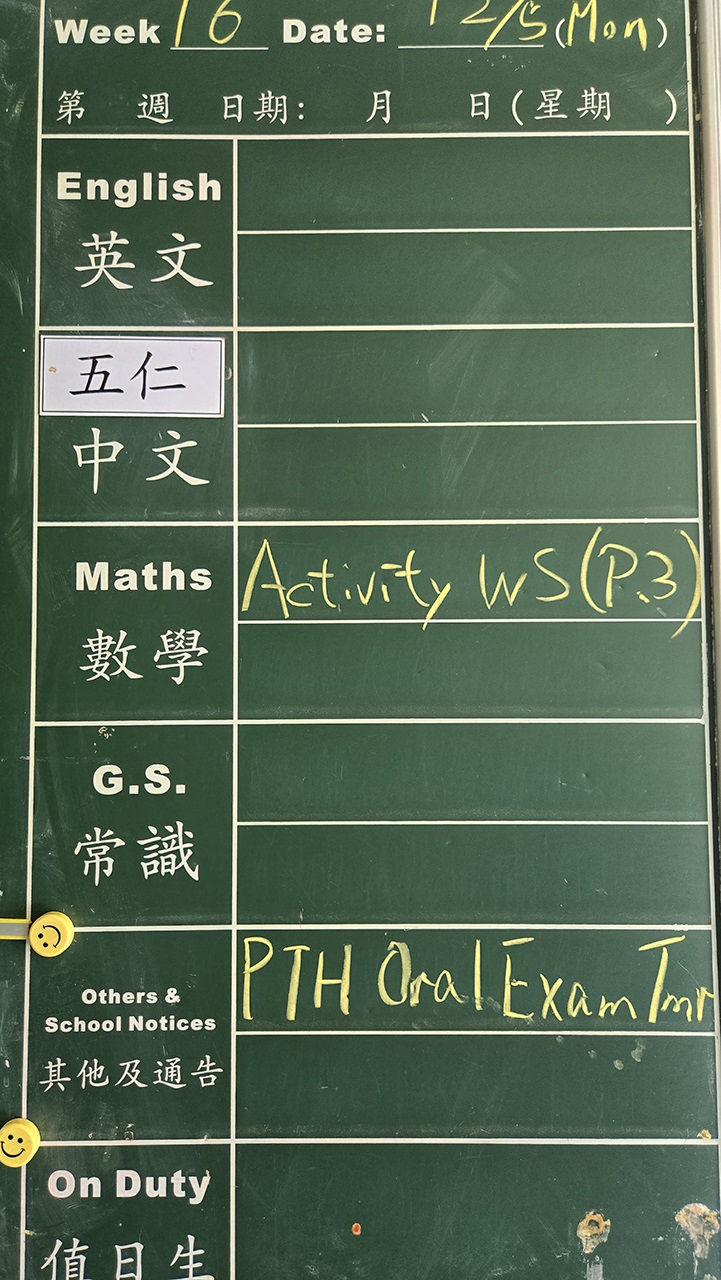 Week 16 Date: 12/5 (Mon)
第 週 日期: 月 日(星期 )
English
英文
五仁
中文
Maths Activity WS (P.3)
數學
G.S.
常識
PTH Oral Exam Tmr
Others &
School Notices
其他及通告
On Duty
值日生